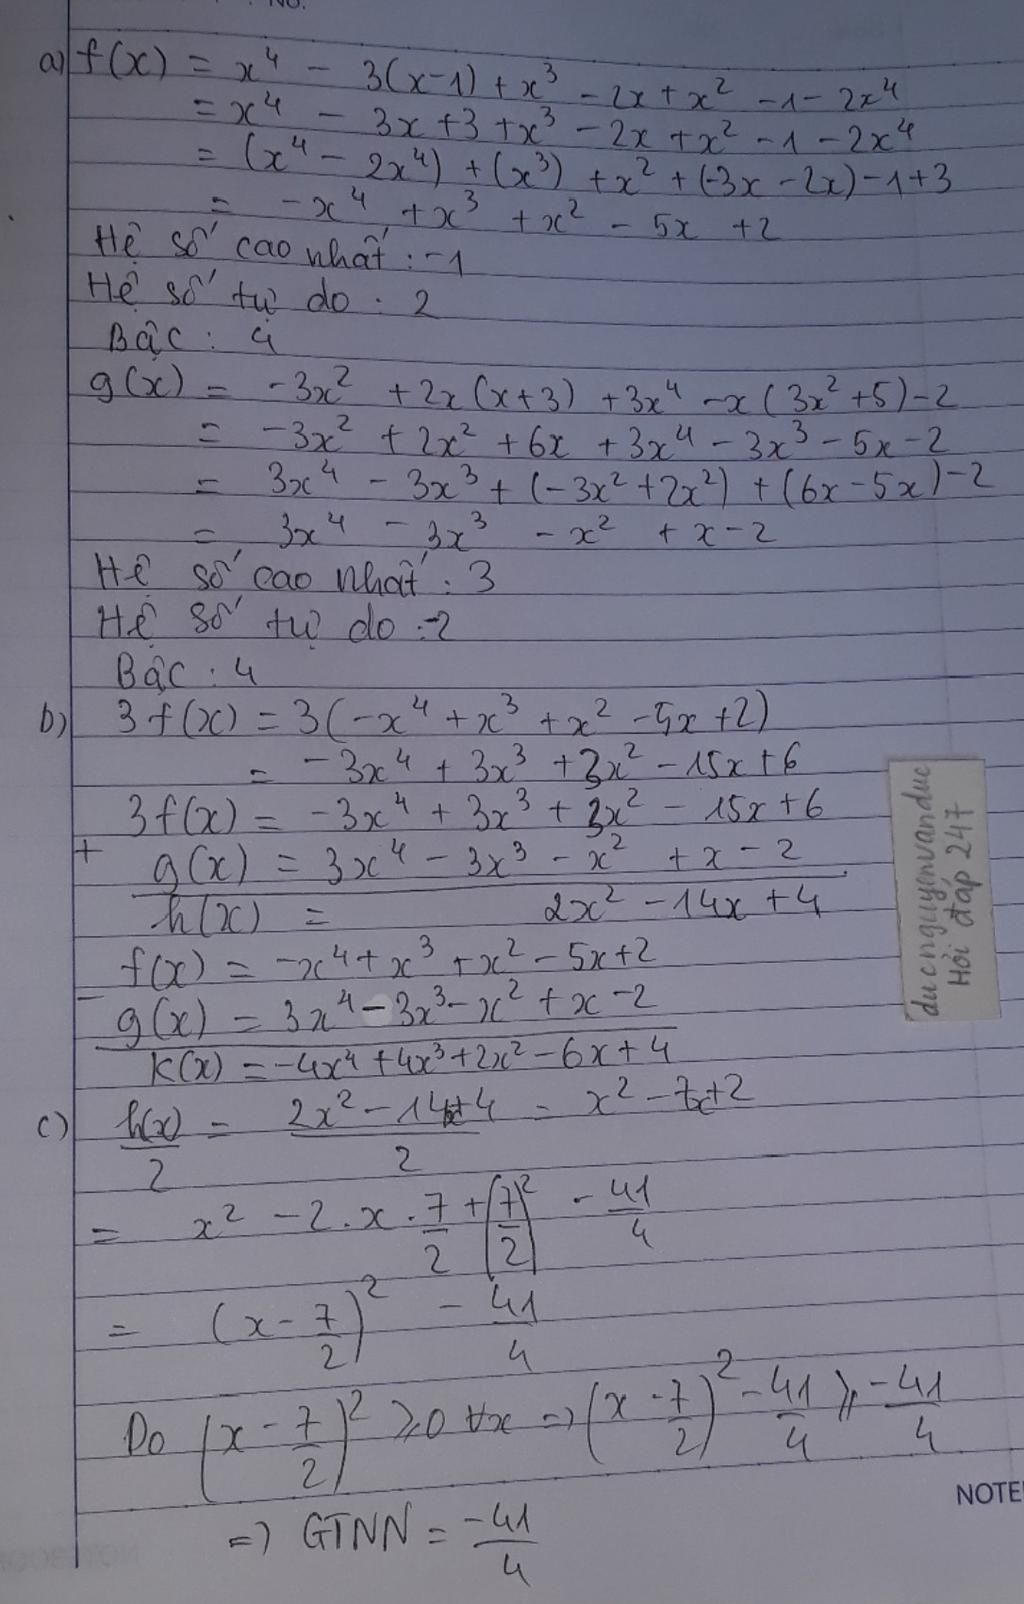 NO.
a) f(x) = x⁴ - 3(x-1) + x³ - 2x + x² - 1 - 2x⁴
= x⁴ - 3x + 3 + x³ - 2x + x² - 1 - 2x⁴
= (x⁴ - 2x⁴) + (x³) + x² + (-3x - 2x) - 1 + 3
= -x⁴ + x³ + x² - 5x + 2
Hệ số cao nhất : -1
Hệ số tự do : 2
Bậc : 4
g(x) = -3x² + 2x(x+3) + 3x⁴ - x(3x²+5) - 2
= -3x² + 2x² + 6x + 3x⁴ - 3x³ - 5x - 2
= 3x⁴ - 3x³ + (-3x² + 2x²) + (6x - 5x) - 2
= 3x⁴ - 3x³ - x² + x - 2
Hệ số cao nhất : 3
Hệ số tự do : -2
Bậc : 4
b) 3f(x) = 3(-x⁴ + x³ + x² - 5x + 2)
= -3x⁴ + 3x³ + 3x² - 15x + 6
3f(x) = -3x⁴ + 3x³ + 3x² - 15x + 6
+
g(x) = 3x⁴ - 3x³ - x² + x - 2
h(x) = 2x² - 14x + 4
f(x) = -x⁴ + x³ + x² - 5x + 2
-
g(x) = 3x⁴ - 3x³ - x² + x - 2
K(x) = -4x⁴ + 4x³ + 2x² - 6x + 4
c) h(x)/2 = (2x² - 14x + 4)/2 = x² - 7x + 2
= x² - 2.x.7/2 + (7/2)² - 41/4
= (x - 7/2)² - 41/4
Do (x - 7/2)² ≥ 0 ∀x => (x - 7/2)² - 41/4 ≥ -41/4
=> GTNN = -41/4
ducnguyenvanduc
Hỏi đáp 247
NOTE